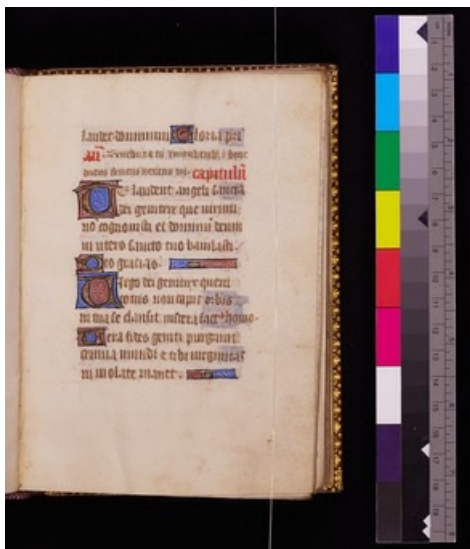 laudet dominum Gloria pri
capitulū
Te laudent angeli sancta
dei genitrix que virum
nō cognouisti et dominū
in utero sancto tuo baiulasti
Deo gracias
Virgo dei genitrix quem
totus non capit orbis
in tua se clausit uiscera factꝰ homo
Vera fides geniti purgauit
crimina mundi et tibi uirginitas
inuiolata manet